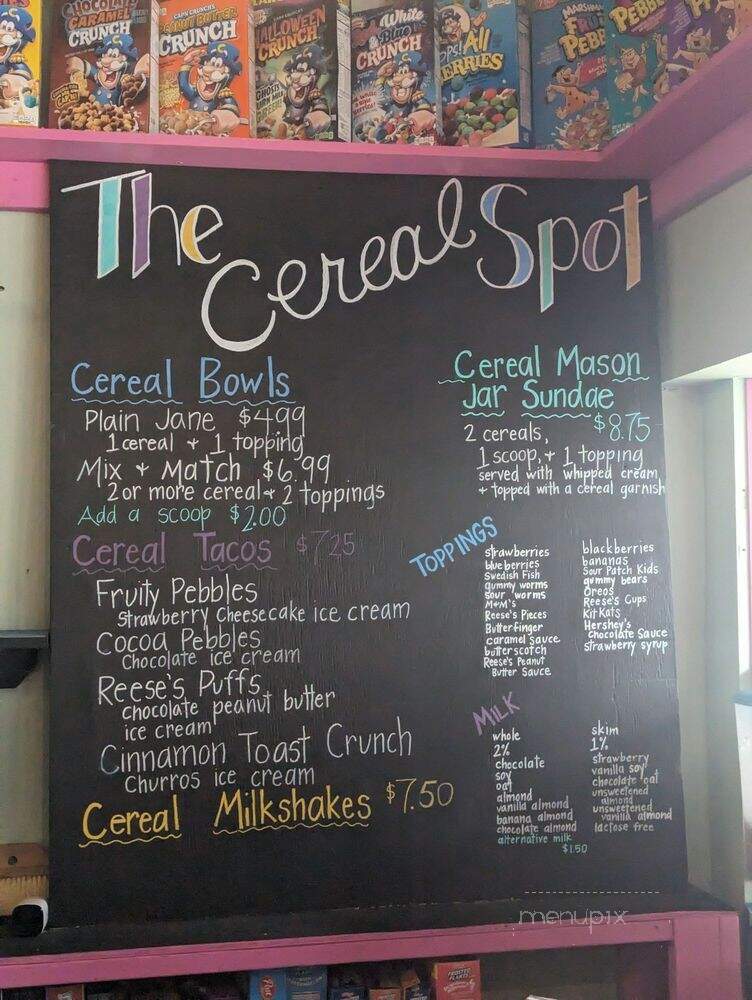 CHOCOLATE
CARAMEL
CRUNCH
CAP'N CRUNCH'S
PEANUT BUTTER
CRUNCH
HALLOWEEN
CRUNCH
White
Blue
CRUNCH
OPS! All
BERRIES
MARSHMALLOW
PEBB
PEBB
The Cereal Spot
Cereal Bowls
Plain Jane $4.99
1 cereal + 1 topping
Mix + Match $6.99
2 or more cereal + 2 toppings
Add a scoop $2.00
Cereal Tacos $7.25
Fruity Pebbles
Strawberry Cheesecake ice cream
Cocoa Pebbles
Chocolate ice cream
Reese's Puffs
chocolate peanut butter
ice cream
Cinnamon Toast Crunch
Churros ice cream
Cereal Milkshakes $7.50
Cereal Mason
Jar Sundae
$8.75
2 cereals,
1 scoop, + 1 topping
served with whipped cream
+ topped with a cereal garnish
TOPPINGS
strawberries
blueberries
Swedish Fish
gummy worms
sour worms
M+M's
Reese's Pieces
Butterfinger
caramel sauce
butterscotch
Reese's Peanut
Butter Sauce
blackberries
bananas
Sour Patch Kids
gummy bears
Oreos
Reese's Cups
Kit Kats
Hershey's
Chocolate Sauce
strawberry syrup
MILK
whole
2%
chocolate
soy
oat
almond
vanilla almond
banana almond
chocolate almond
alternative milk
$1.50
skim
1%
strawberry
vanilla soy
chocolate oat
unsweetened
almond
unsweetened
vanilla almond
lactose free
menupix
FROSTED
FLAKES